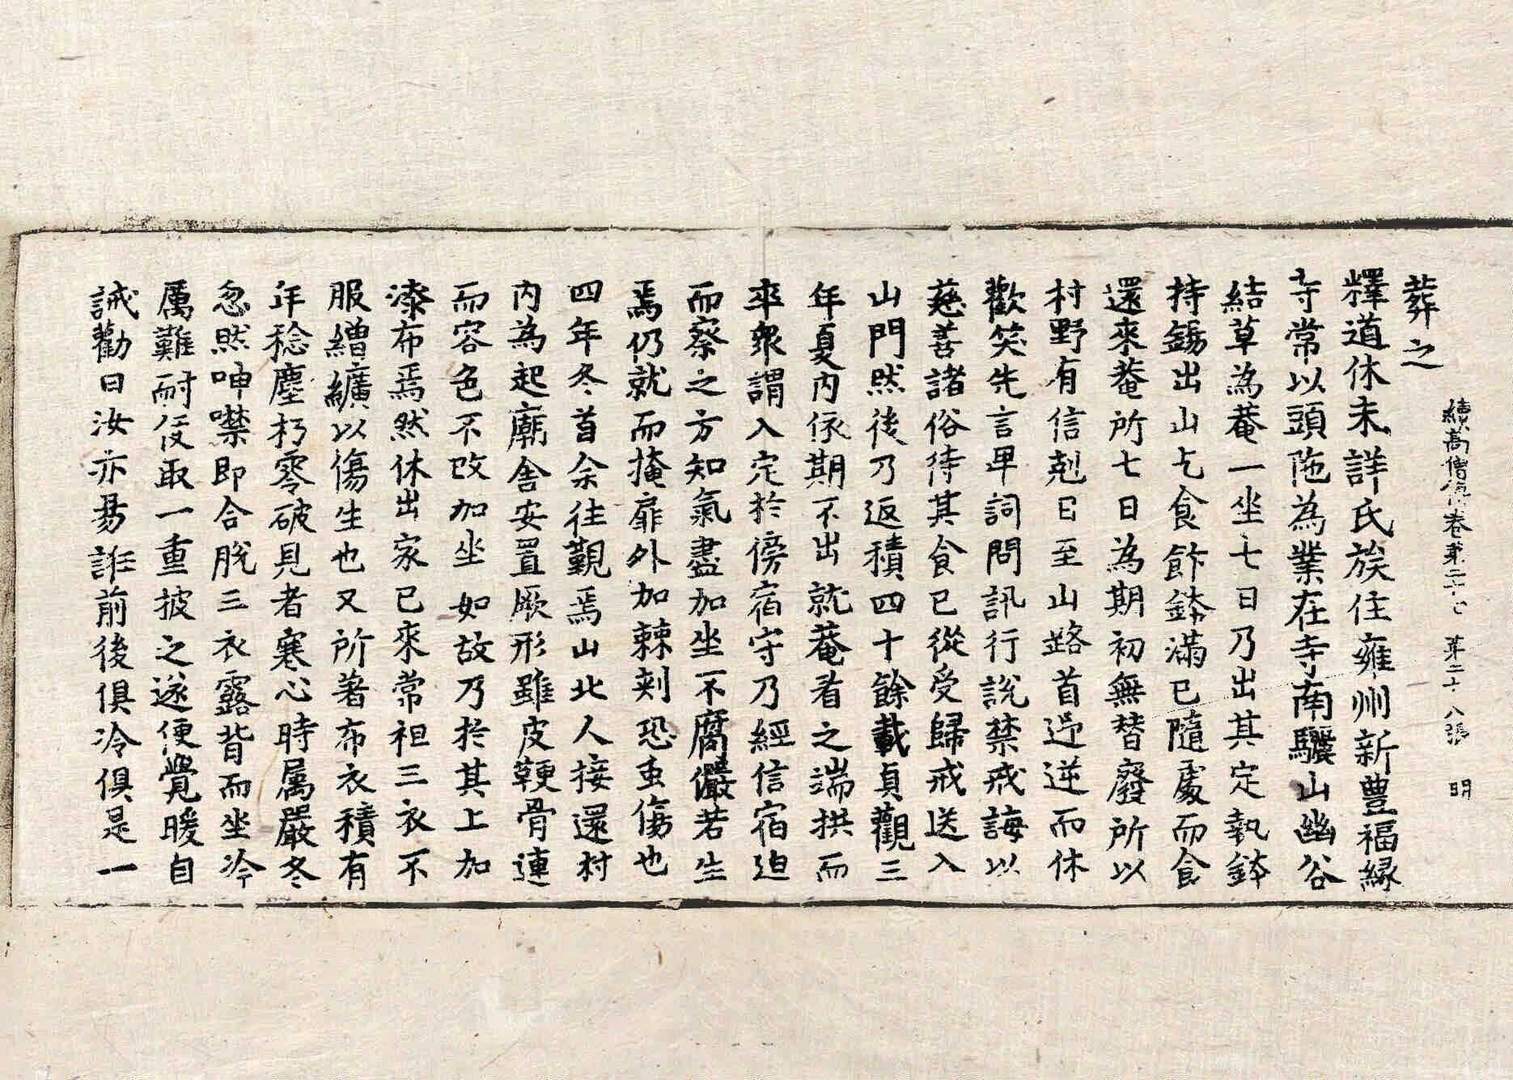 續高僧傳卷第二十七 第二十八張 明
葬之
釋道休未詳氏族住雍州新豐福緣
寺常以頭陁為業在寺南驪山幽谷
結草為菴一坐七日乃出其定執鉢
持錫出山乞食飰鉢滿已隨處而食
還來菴所七日為期初無替廢所以
村野有信剋日至山路首迎逆而休
歡笑先言卑詞問訊行說禁戒誨以
慈善諸俗待其食已從受歸戒送入
山門然後乃返積四十餘載貞觀三
年夏內依期不出就菴看之端拱而
卒衆謂入定於傍宿守乃經信宿迫
而察之方知氣盡加坐不腐儼若生
焉仍就而掩扉外加棘刺恐虫傷也
四年冬首余往覲焉山北人接還村
內為起廟舍安置厥形雖皮鞕骨連
而容色不改加坐如故乃於其上加
漆布焉然休出家已來常袒三衣不
服繒纊以傷生也又所著布衣積有
年稔塵朽零破見者寒心時属嚴冬
忽然呻噤即合脫三衣露背而坐冷
厲難耐侵取一重披之遂便覺暖自
誡勸曰汝亦易誑前後俱冷俱是一